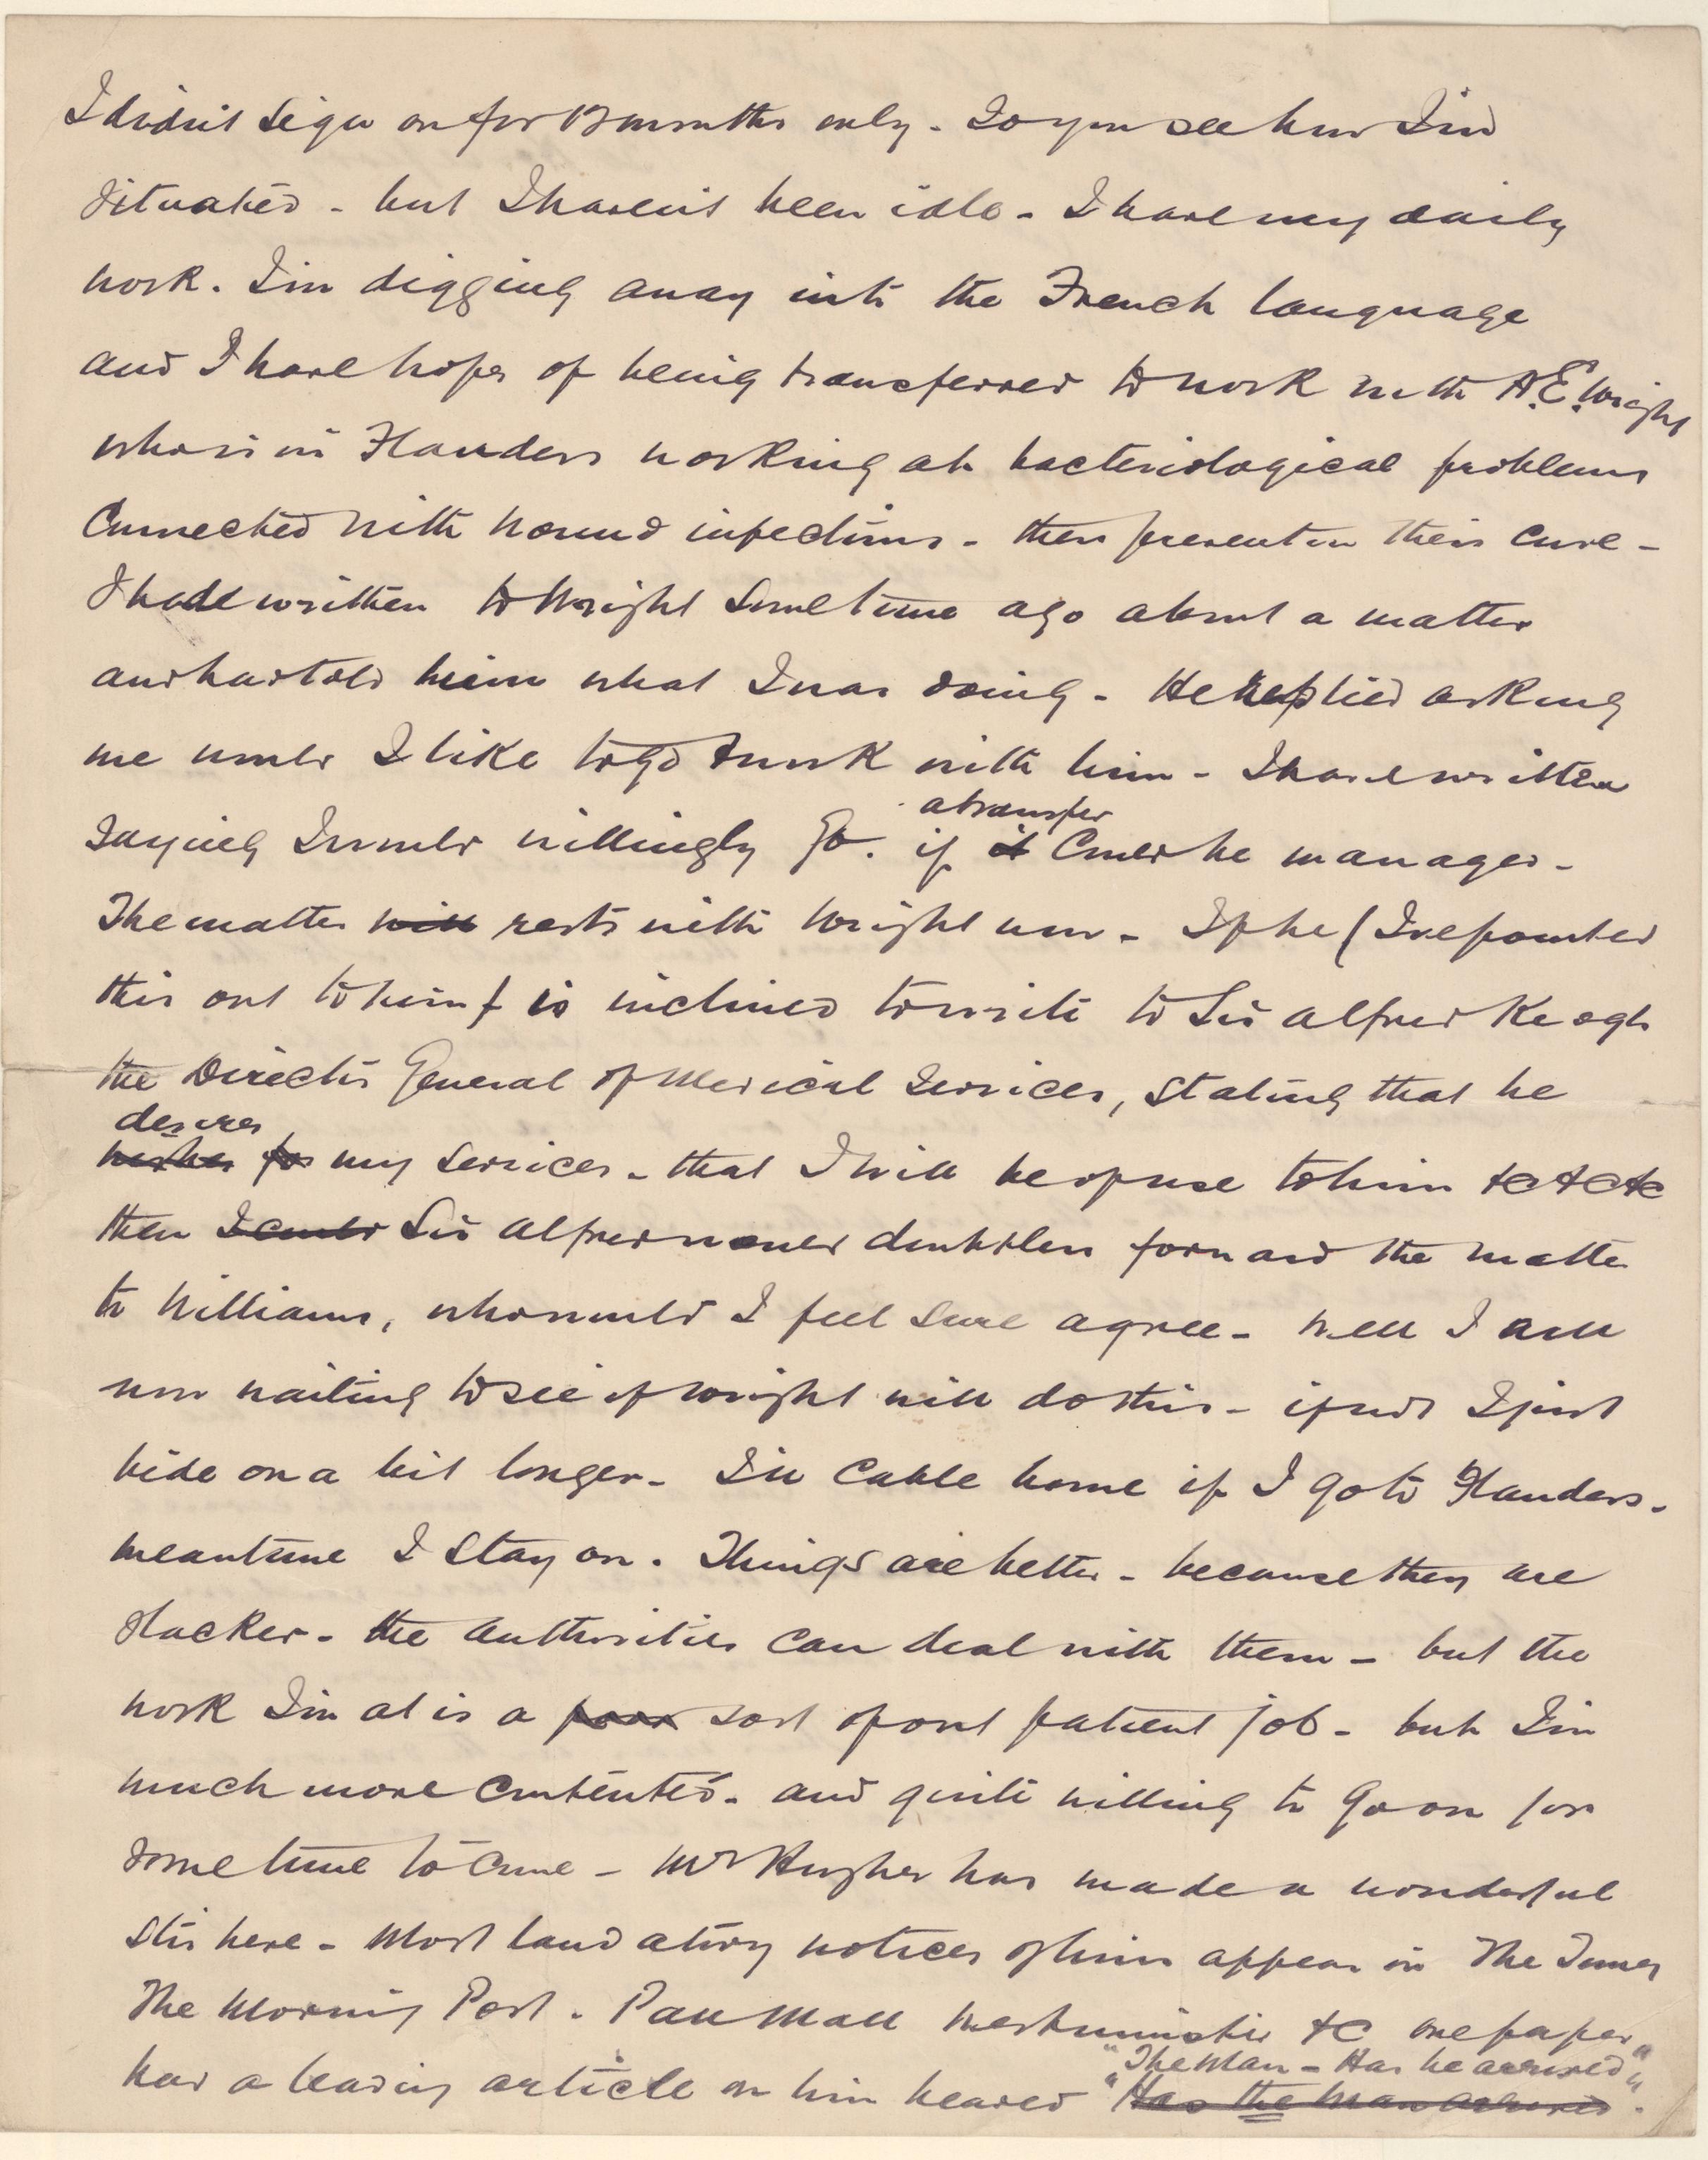 I didn't sign on for 12 months only - So you see how I'm
situated - but I haven't been idle - I have my daily
work. I'm digging away into the French language
and I have hopes of being transferred to work with A.E. Wright
who is in Flanders working at bacteriological problems
connected with wound infections - their prevention their cure -
I had written to Wright some time ago about a matter
and had told him what I was doing - He replied asking
me would I like to go & work with him - I have written
saying I would willingly go. if it a transfer could be managed -
The matter will rests with Wright now - If he (I've pointed
this out to him) is inclined to write to Sir Alfred Keogh
the Director General of Medical Services, stating that he
desires
wishes for my services - that I will be of use to him &c &c &c
then I could Sir Alfred would doubtless forward the matter
to Williams, who would I feel sure agree - Well I am
now waiting to see if Wright will do this - if not I just
bide on a bit longer - I'll cable home if I go to Flanders -
meantime I stay on. Things are better - because they are
slacker - the authorities can deal with them - but the
work I'm at is a poor sort of out patient job - but I'm
much more contented - and quite willing to go on for
some time to come - Mr Hughes has made a wonderful
stir here - Most laudatory notices of him appear in The Times
The Morning Post. Pall Mall Westminster &c one paper
"The Man - Has he arrived"
had a leading article on him headed "Has the Man arrived".